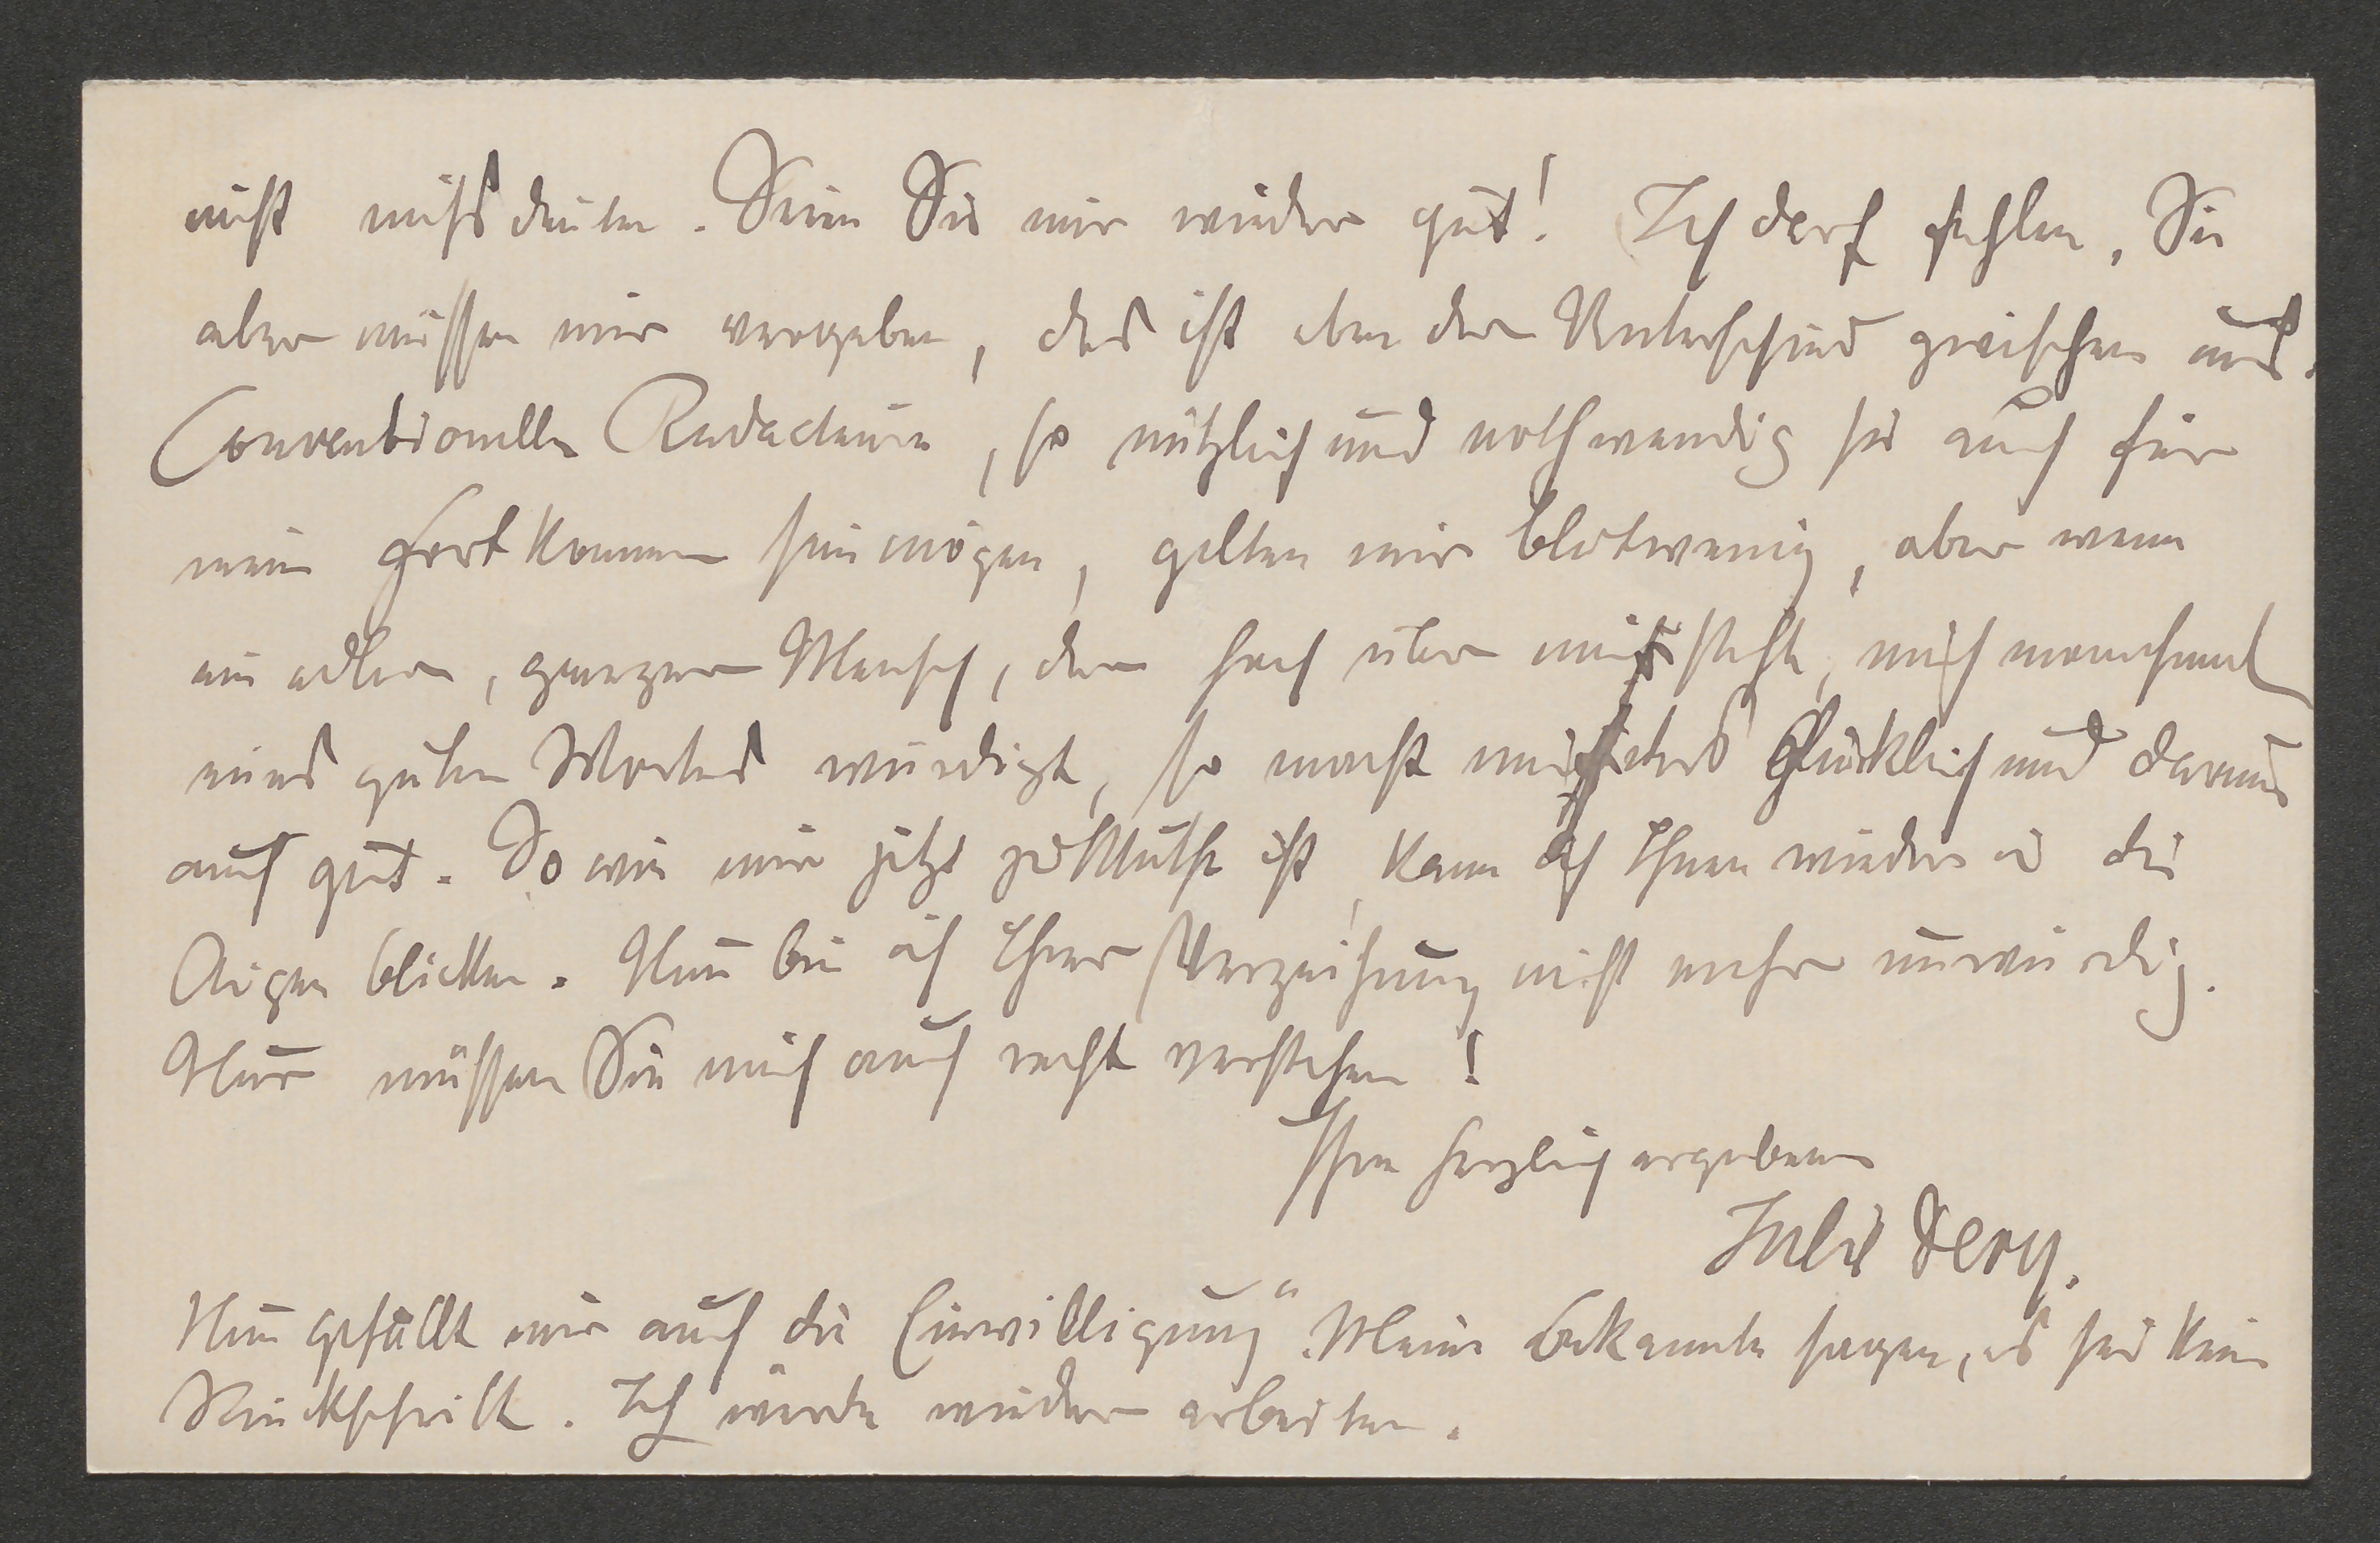 nicht mißdeuten. Seien Sie mir wieder gut! Ich darf fehlen, Sie
aber müssen mir vergeben, das ist eben der Unterschied zwischen uns.
Conventionelle Redacteure, so nützlich und nothwendig sie auch für
mein Fortkommen sein mögen, gelten mir blutwenig, aber wenn
ein edler, ganzer Mensch, der hoch über mir steht, mich manchmal
eines guten Wortes würdigt, so macht mich das glücklich und darum
auch gut. So wie mir jetzt zu Muthe ist, kann ich Ihnen wieder in die
Augen blicken. Nun bin ich Ihrer Verzeihung nicht mehr unwürdig.
Nur müssen Sie mich auch recht verstehen!
Ihre herzlich ergebene
Julie Dery.
Nun gefällt mir auch die Einwilligung". Meine Bekannte sagen, es sei kein
Rückschritt. Ich werde wieder arbeiten.